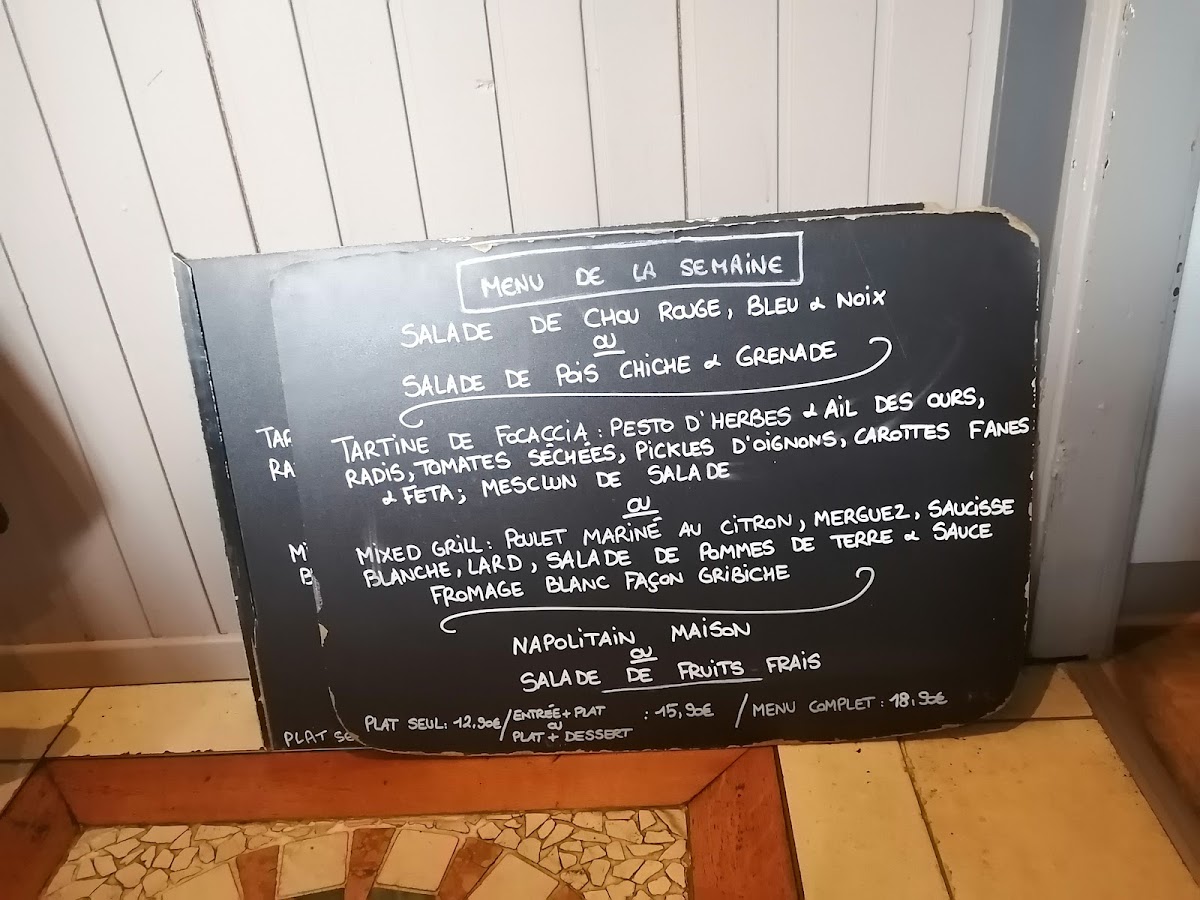 MENU DE LA SEMAINE
SALADE DE CHOU ROUGE, BLEU & NOIX
OU
SALADE DE POIS CHICHE & GRENADE
TARTINE DE FOCACCIA : PESTO D'HERBES & AIL DES OURS,
RADIS, TOMATES SÉCHÉES, PICKLES D'OIGNONS, CAROTTES FANES
& FETA ; MESCLUN DE SALADE
OU
MIXED GRILL : POULET MARINÉ AU CITRON, MERGUEZ, SAUCISSE
BLANCHE, LARD, SALADE DE POMMES DE TERRE & SAUCE
FROMAGE BLANC FAÇON GRIBICHE
NAPOLITAIN MAISON
OU
SALADE DE FRUITS FRAIS
PLAT SEUL : 12,90€ / ENTRÉE + PLAT : 15,90€ / MENU COMPLET : 18,90€
OU
PLAT + DESSERT
TAR
RA
MI
B
PLAT SE